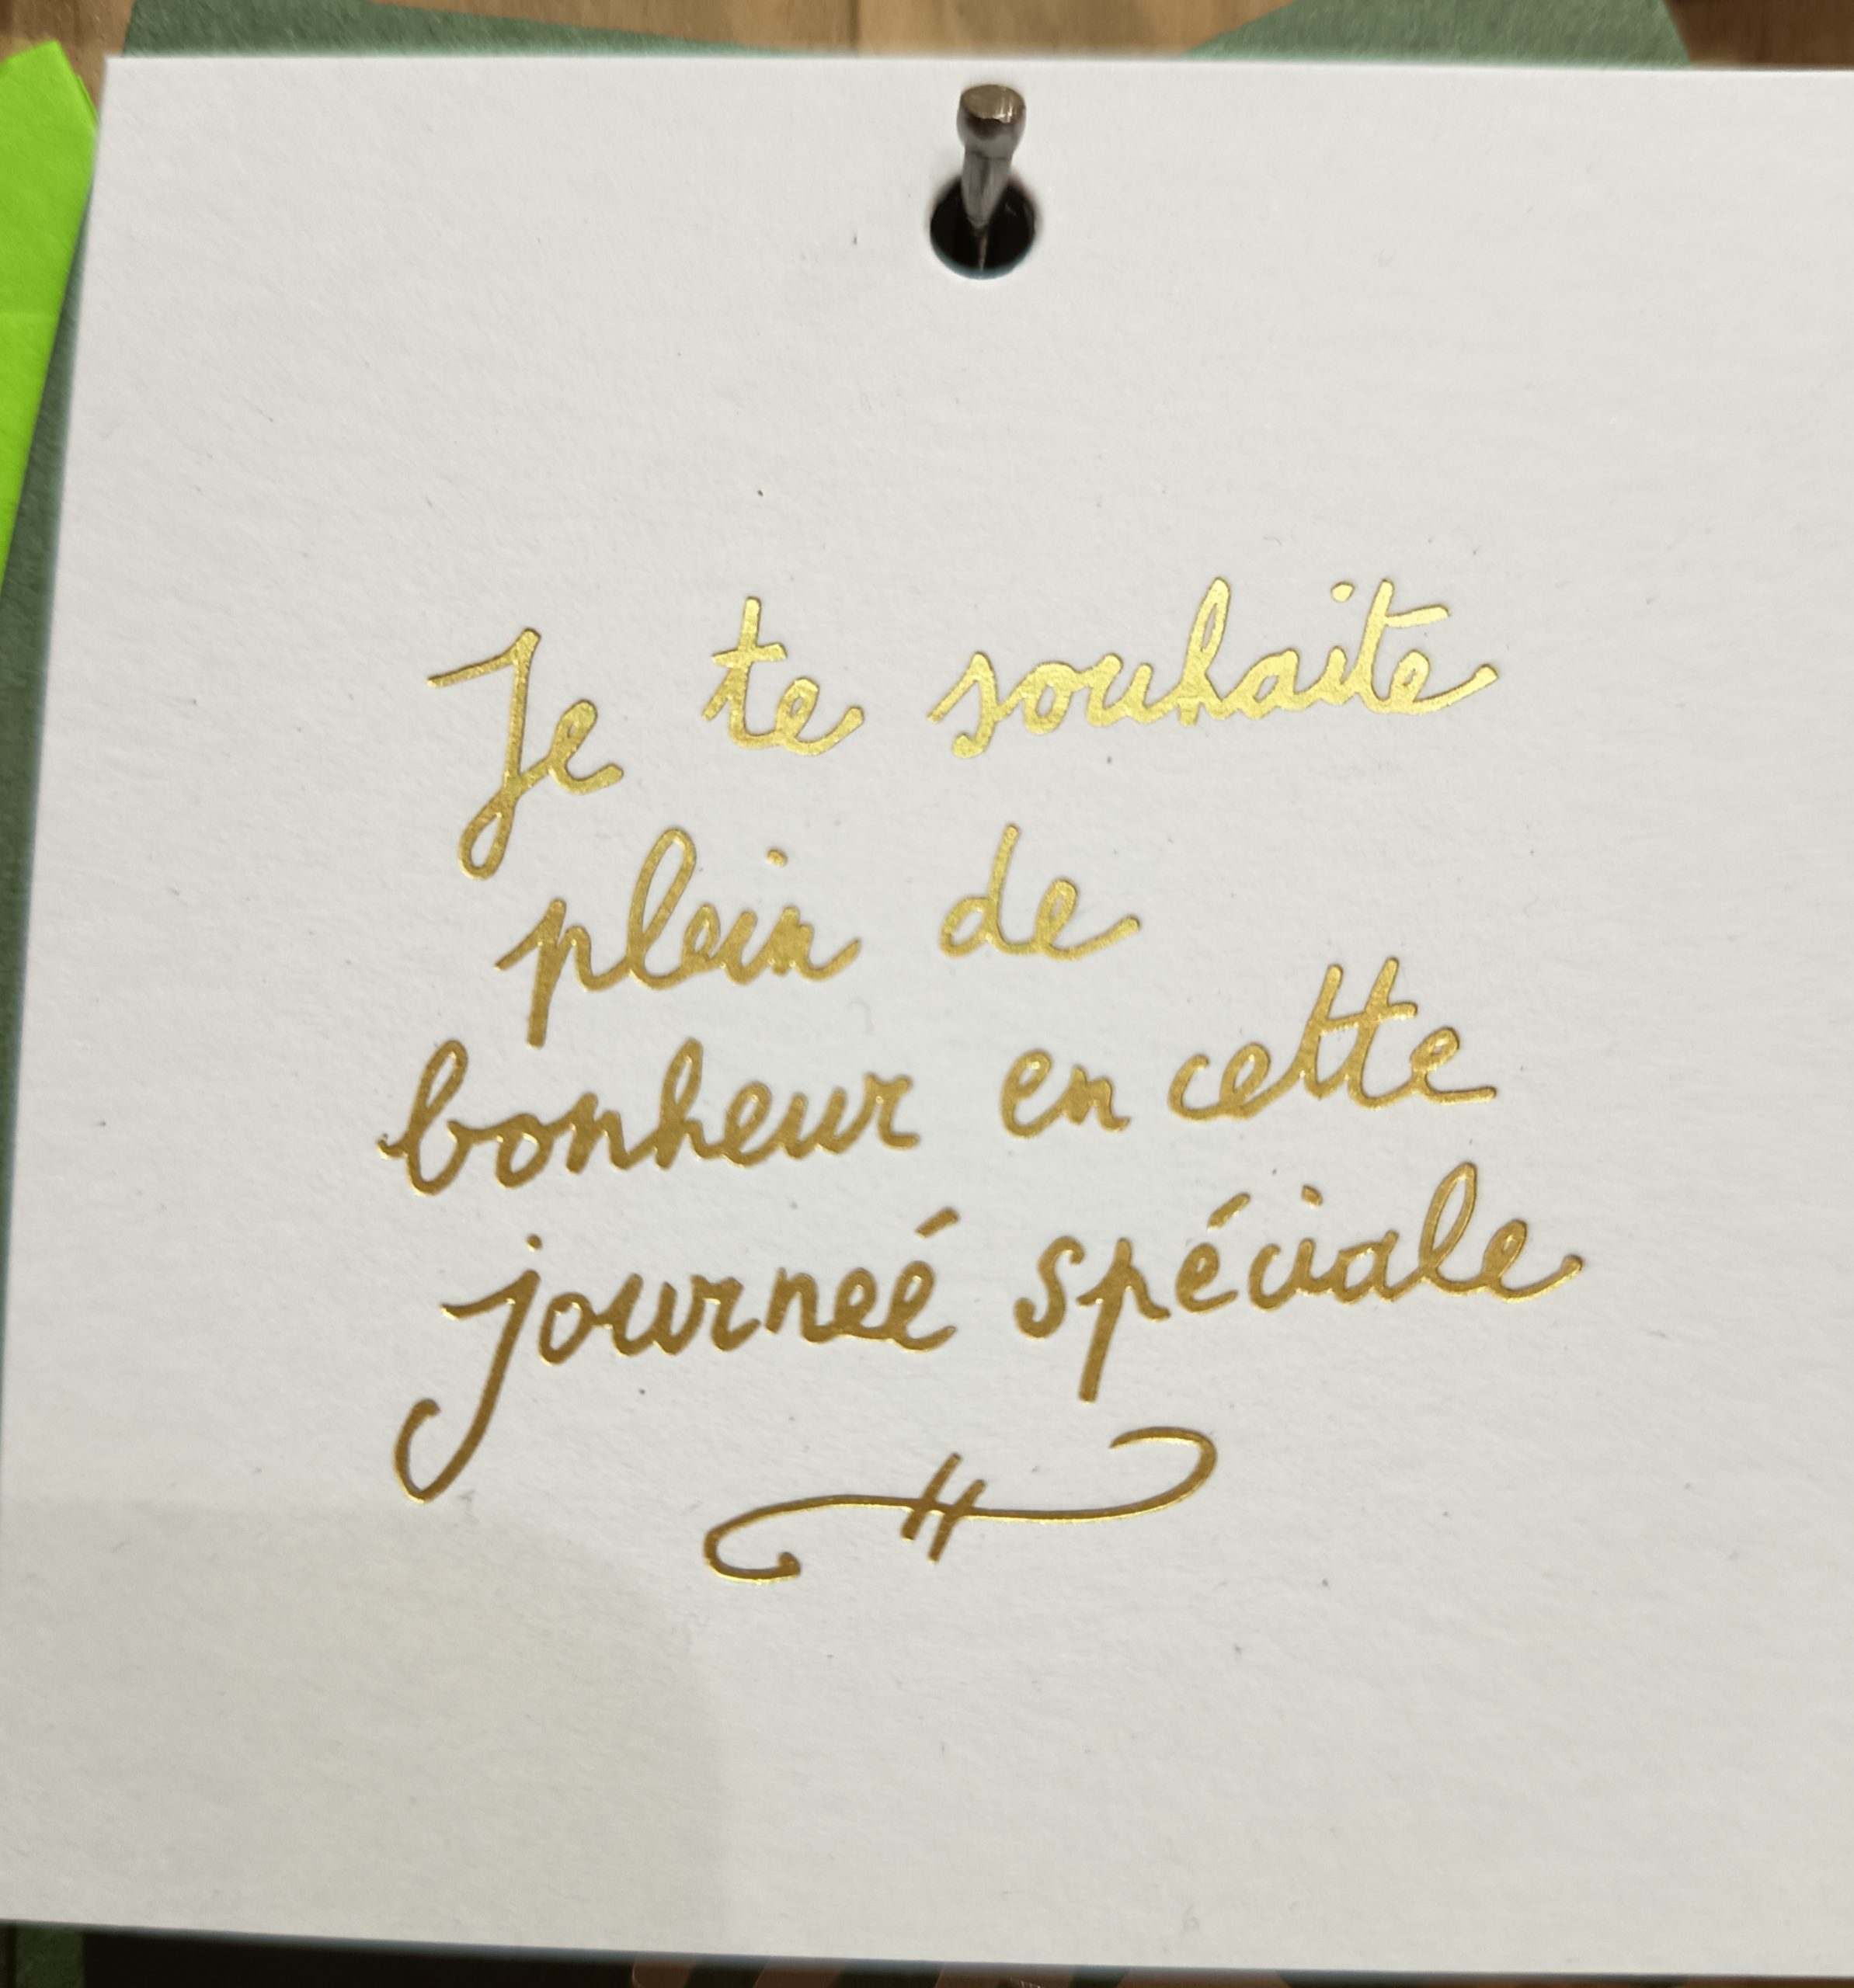 Je te souhaite
plein de
bonheur en cette
journeé spéciale